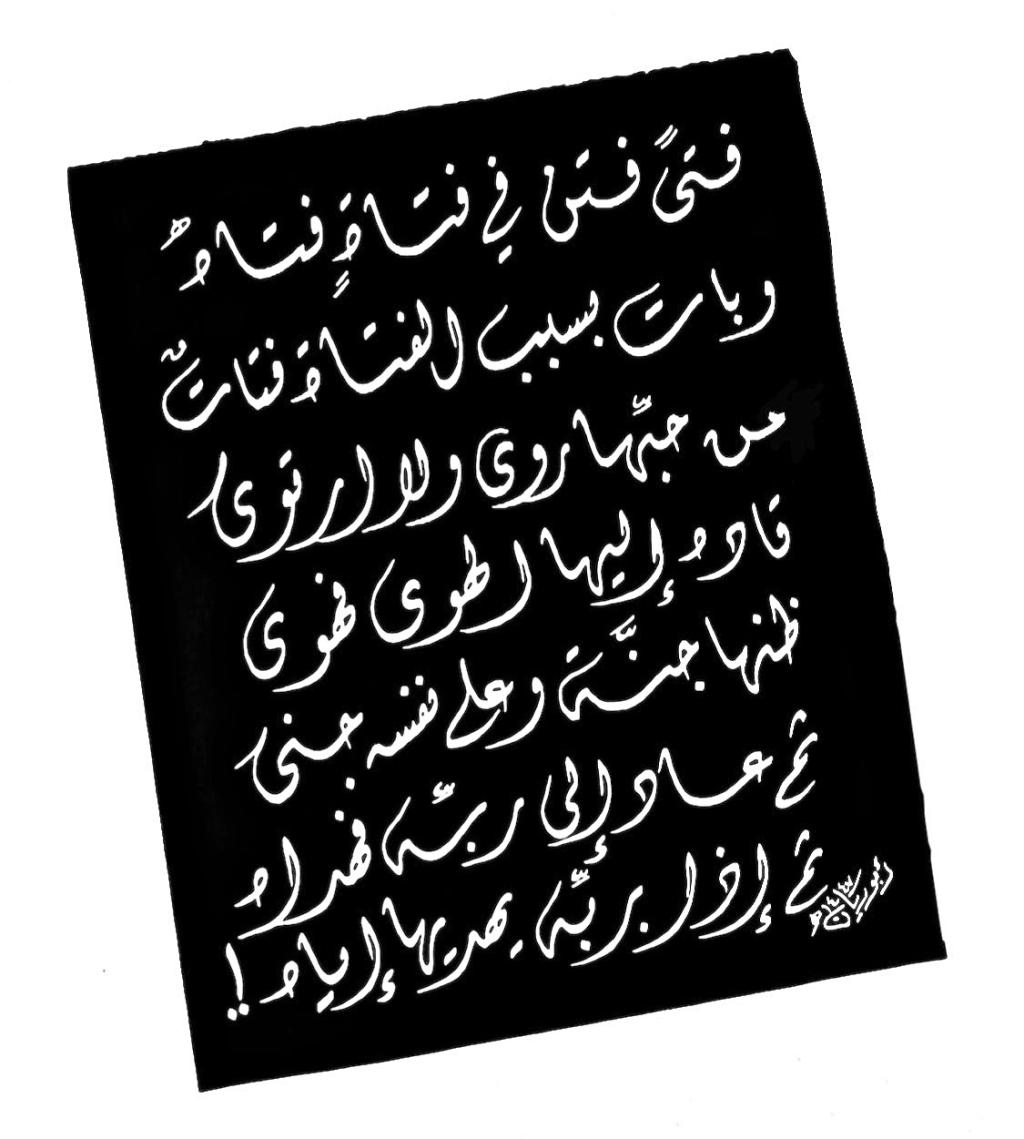 فتىً فتن في فتاةٍ فتاهُ
وبات بسبب الفتاة فتاتٌ
من حبِّها روى ولا ارتوى
قاده إليها الهوى فهوى
ظنها جنَّة وعلى نفسه جنى
ثم عاد إلى ربِّه فهداه
ثم إذا بربِّه يهديها إياه !!